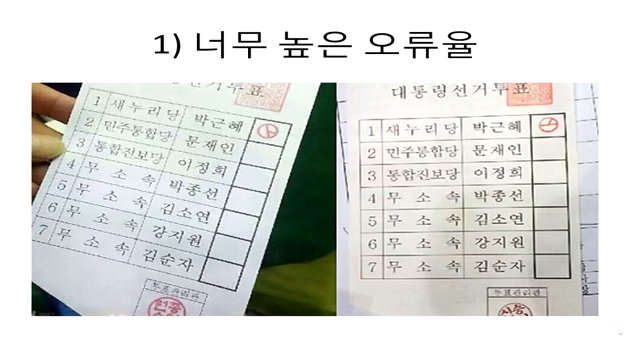 1) 너무 높은 오류율
표
1 새누리당 박근혜
2 민주통합당 문재인
3 통합진보당 이정희
4 무소속 박종선
5 무소속 김소연
6 무소속 강지원
7 무소속 김순자
투표관리관
대통령선거투표
1 새누리당 박근혜
2 민주통합당 문재인
3 통합진보당 이정희
4 무소속 박종선
5 무소속 김소연
6 무소속 강지원
7 무소속 김순자
투표관리관